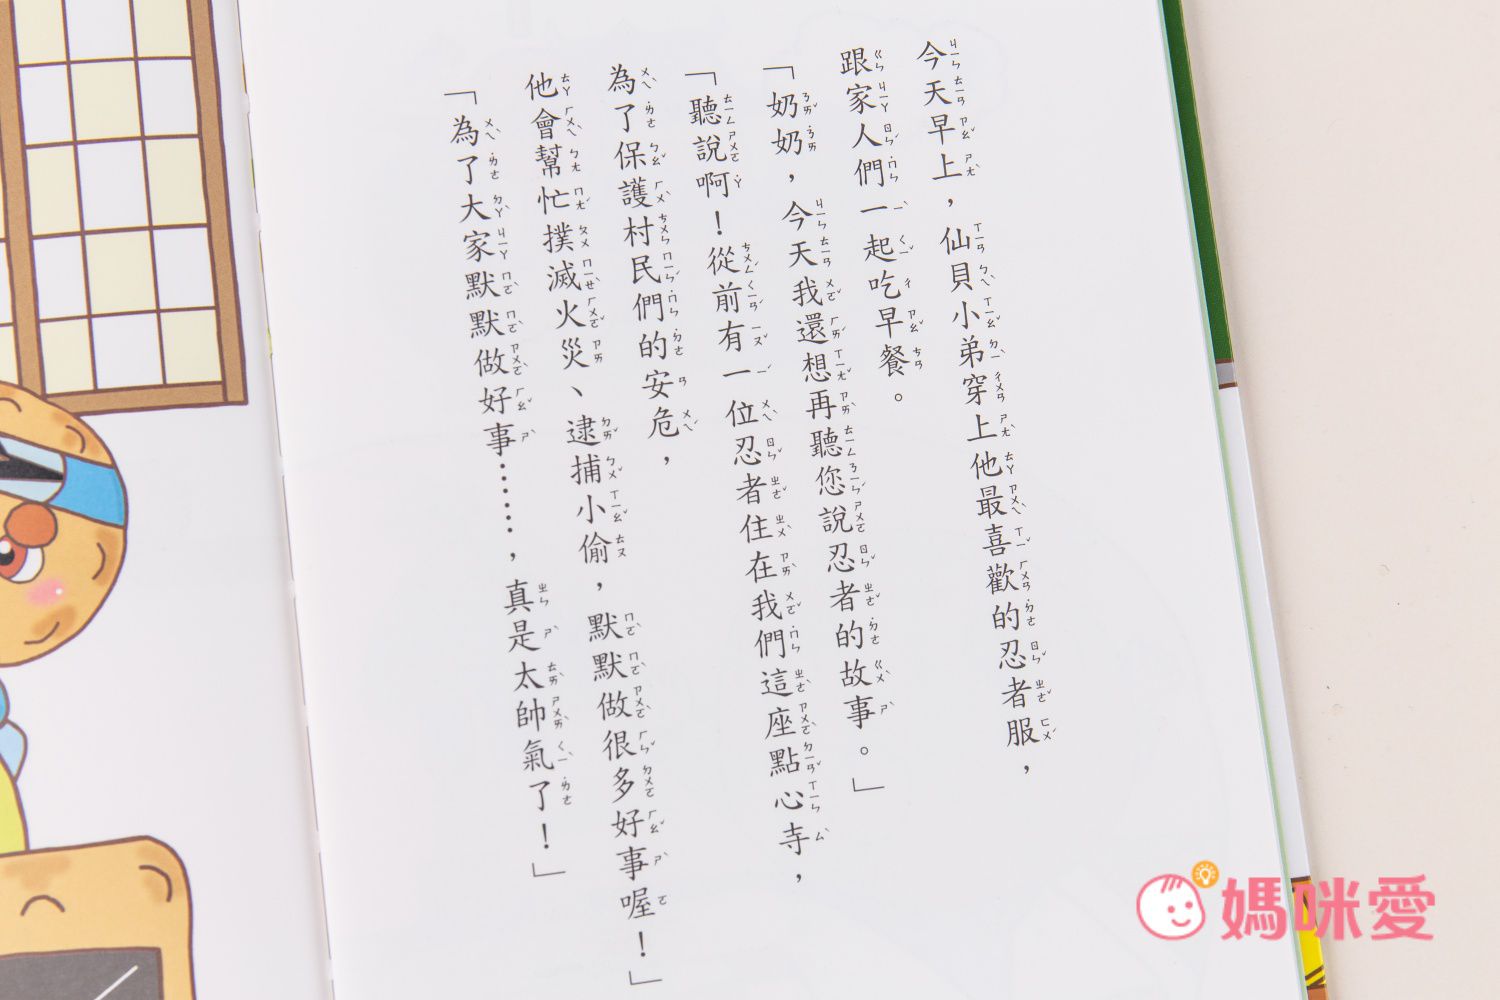 今天早上，仙貝小弟穿上他最喜歡的忍者服，
跟家人們一起吃早餐。
「奶奶，今天我還想再聽您說忍者的故事。」
「聽說啊！從前有一位忍者住在我們這座點心寺，
為了保護村民們的安危，
他會幫忙撲滅火災、逮捕小偷，默默做很多好事喔！」
「為了大家默默做好事……，真是太帥氣了！」
媽咪愛